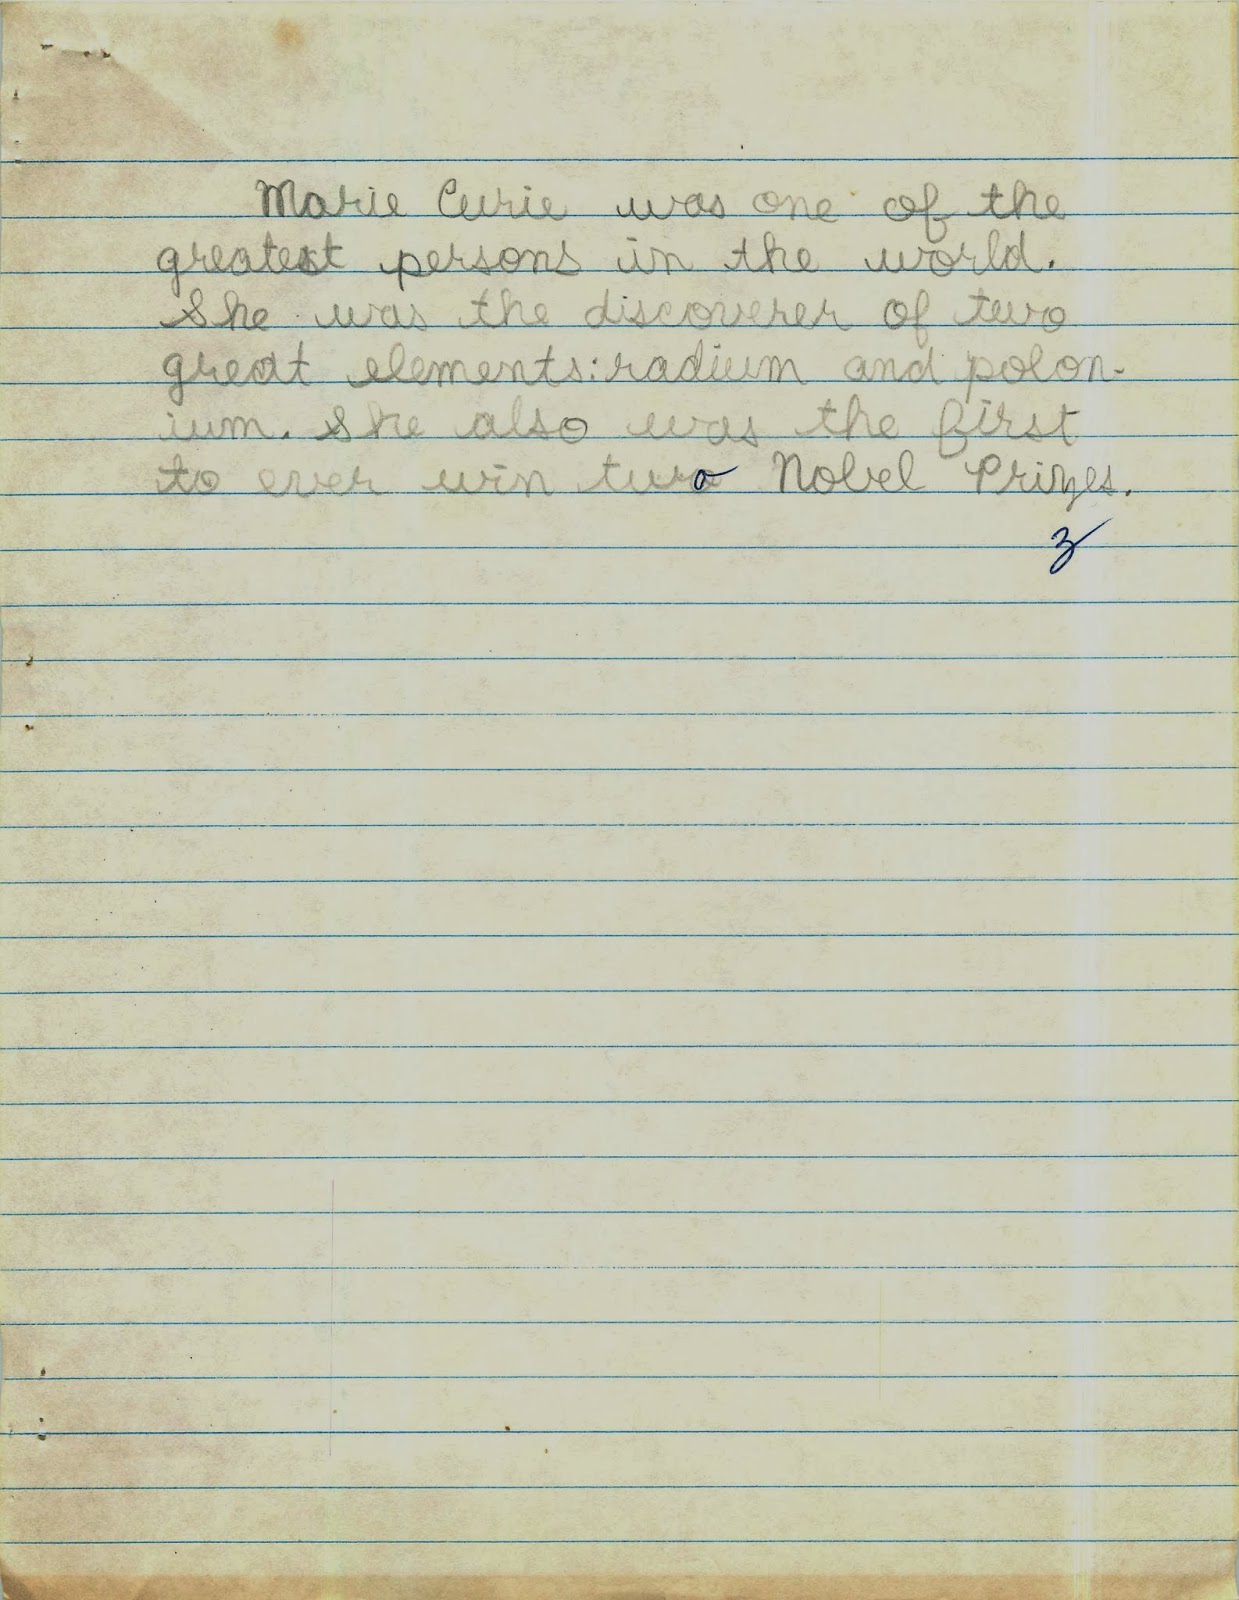 Marie Curie was one of the
greatest persons in the world.
She was the discoverer of two
great elements: radium and polon-
ium. She also was the first
to ever win two Nobel Prizes.
z